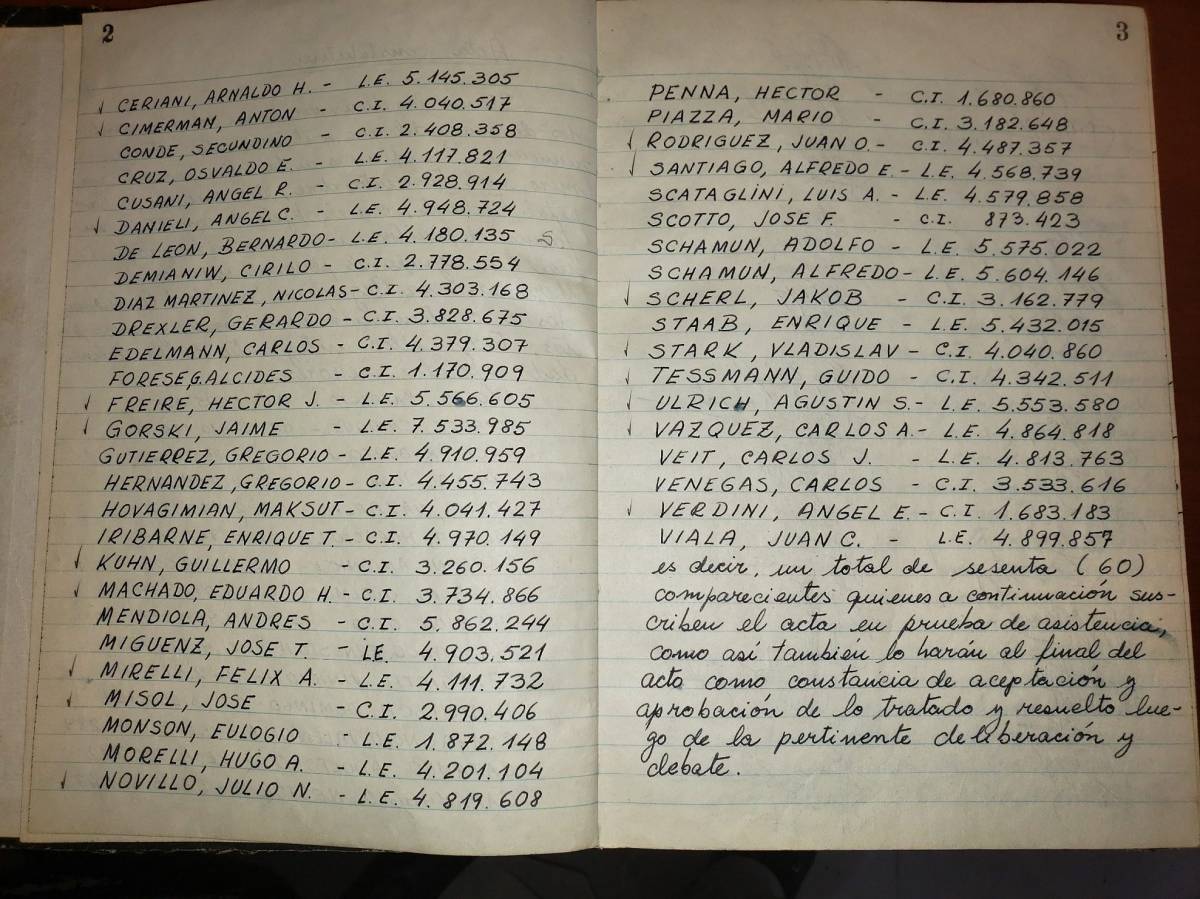 2
✓ CERIANI, ARNALDO H. - L.E. 5.145.305
✓ CIMERMAN, ANTON - C.I. 4.040.517
CONDE, SECUNDINO - C.I. 2.408.358
CRUZ, OSVALDO E. - L.E. 4.117.821
CUSANI, ANGEL R. - C.I. 2.928.914
✓ DANIELI, ANGEL C. - L.E. 4.948.724
DE LEON, BERNARDO - L.E. 4.180.135
DEMIANIW, CIRILO - C.I. 2.778.554
DIAZ MARTINEZ, NICOLAS - C.I. 4.303.168
DREXLER, GERARDO - C.I. 3.828.675
EDELMANN, CARLOS - C.I. 4.379.307
FORESE, G. ALCIDES - C.I. 1.170.909
✓ FREIRE, HECTOR J. - L.E. 5.566.605
✓ GORSKI, JAIME - L.E. 7.533.985
GUTIERREZ, GREGORIO - L.E. 4.910.959
HERNANDEZ, GREGORIO - C.I. 4.455.743
HOVAGIMIAN, MAKSUT - C.I. 4.041.427
IRIBARNE, ENRIQUE T. - C.I. 4.970.149
✓ KUHN, GUILLERMO - C.I. 3.260.156
✓ MACHADO, EDUARDO H. - C.I. 3.734.866
MENDIOLA, ANDRES - C.I. 5.862.244
MIGUENZ, JOSE T. - L.E. 4.903.521
✓ MIRELLI, FELIX A. - L.E. 4.111.732
✓ MISOL, JOSE - C.I. 2.990.406
MONSON, EULOGIO - L.E. 1.872.148
MORELLI, HUGO A. - L.E. 4.201.104
✓ NOVILLO, JULIO N. - L.E. 4.819.608
3
PENNA, HECTOR - C.I. 1.680.860
PIAZZA, MARIO - C.I. 3.182.648
✓ RODRIGUEZ, JUAN O. - C.I. 4.487.357
✓ SANTIAGO, ALFREDO E. - L.E. 4.568.739
SCATAGLINI, LUIS A. - L.E. 4.579.858
SCOTTO, JOSE F. - C.I. 873.423
SCHAMUN, ADOLFO - L.E. 5.575.022
SCHAMUN, ALFREDO - L.E. 5.604.146
✓ SCHERL, JAKOB - C.I. 3.162.779
STAAB, ENRIQUE - L.E. 5.432.015
✓ STARK, VLADISLAV - C.I. 4.040.860
✓ TESSMANN, GUIDO - C.I. 4.342.511
✓ ULRICH, AGUSTIN S. - L.E. 5.553.580
✓ VAZQUEZ, CARLOS A. - L.E. 4.864.818
VEIT, CARLOS J. - L.E. 4.813.763
VENEGAS, CARLOS - C.I. 3.533.616
✓ VERDINI, ANGEL E. - C.I. 1.683.183
VIALA, JUAN C. - L.E. 4.899.857
es decir, un total de sesenta (60)
comparecientes quienes a continuación sus-
criben el acta en prueba de asistencia,
como así también lo harán al final del
acta como constancia de aceptación y
aprobación de lo tratado y resuelto lue-
go de la pertinente deliberación y
debate.